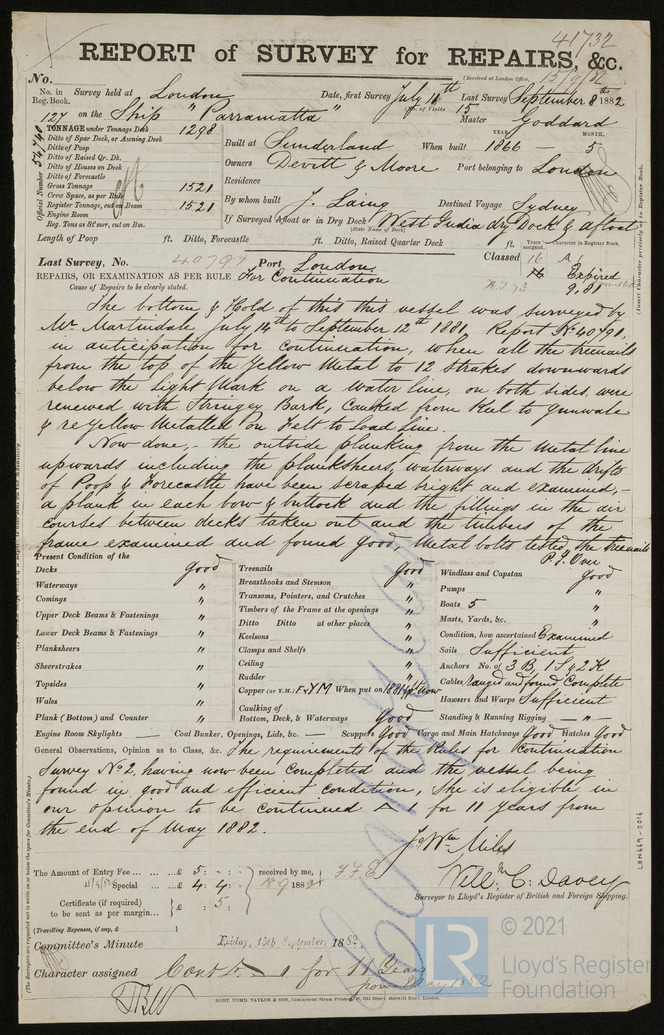 41732
REPORT of SURVEY for REPAIRS, &c.
(Received at London Office, 15/9/82
No.
No. in Reg. Book. Survey held at London Date, first Survey July 18th Last Survey September 8th 1882
(No. of Visits 15
127 on the Ship "Parramatta" Master Goddard
TONNAGE under Tonnage Dk 1298
YEAR. MONTH.
Ditto of Spar Deck, or Awning Deck
Built at Sunderland When built 1866 — 5
Ditto of Poop
Ditto of Raised Qr. Dk.
Owners Devitt & Moore Port belonging to London
Ditto of Houses on Deck
Ditto of Forecastle
Residence
Gross Tonnage 1521
Crew Space, as per Rule
By whom built J. Laing Destined Voyage Sydney
Register Tonnage, cut on Beam 1521
Engine Room
If Surveyed Afloat or in Dry Dock West India dry Dock & afloat
(State Name of Dock)
Reg. Tons as St'mer, cut on Bm.
Official Number 54740
Length of Poop ft. Ditto, Forecastle ft. Ditto, Raised Quarter Deck ft.
Years assigned. Character in Register Book.
Last Survey, No. 40791 Port London Classed 16 A1
REPAIRS, OR EXAMINATION AS PER RULE For Continuation
Expired
9.81
Cause of Repairs to be clearly stated.
(Insert Character precisely as in Register Book.
The bottom & Hold of this this vessel was surveyed by
Mr Martindale July 14th to September 12th 1881, Report No 40791,
in anticipation for continuation, when all the treenails
from the top of the Yellow Metal to 12 strakes downwards
below the Light Mark on a water line, on both sides were
renewed with Stringey Bark, Caulked from Keel to Gunwale
& re yellow Metalled on Felt to Load Line.
Now done,- the outside planking from the Metal line
upwards including the planksheers, waterways and the
of Poop & Forecastle have been scraped bright and examined,-
a plank in each bow & buttock and the fillings in the air
courses between decks taken out and the timbers of the
frame examined and found good, Metal bolts tested the treenails
P.T. Over
Present Condition of the
Decks Good
Waterways "
Comings "
Upper Deck Beams & Fastenings "
Lower Deck Beams & Fastenings "
Planksheers "
Sheerstrakes "
Topsides "
Wales "
Plank (Bottom) and Counter "
Treenails Good
Breasthooks and Stemson "
Transoms, Pointers, and Crutches "
Timbers of the Frame at the openings "
Ditto Ditto at other places "
Keelsons "
Clamps and Shelfs "
Ceiling "
Rudder "
Copper (or Y.M.) F&YM When put on 1881
Caulking of
Bottom, Deck, & Waterways Good
Windlass and Capstan Good
Pumps "
Boats 5 "
Masts, Yards, &c. "
Condition, how ascertained Examined
Sails Sufficient
Anchors No. of 3 B, 1 S & 2 K
Cables ranged and found Complete
Hawsers and Warps Sufficient
Standing & Running Rigging — " —
Engine Room Skylights — Coal Bunker, Openings, Lids, &c. — Scuppers Good Cargo and Main Hatchways Good Hatches Good
General Observations, Opinion as to Class, &c. The requirements of the Rules for Continuation
Survey No 2, having now been completed and the vessel being
found in good and efficient condition, She is eligible in
our opinion to be continued A 1 for 11 years from
the end of May 1882.
J. Wm Miles
The Amount of Entry Fee ... ... £ 5 : " : received by me,
Special ... £ 4 : 4 : 18 9 1882
Certificate (if required) to be sent as per margin... £ : 5 :
Will. C. Davey
Surveyor to Lloyd's Register of British and Foreign Shipping.
(Travelling Expenses, if any, £
Committee's Minute Friday, 15th September 1882
Character assigned Contd A 1 for 11 Years
from May 1882
LON469-0016
ROBT. TOMB. TAYLOR & SON, Commercial Steam Printing, Old Street, London.
© 2021
LR
Lloyd's Register
Foundation